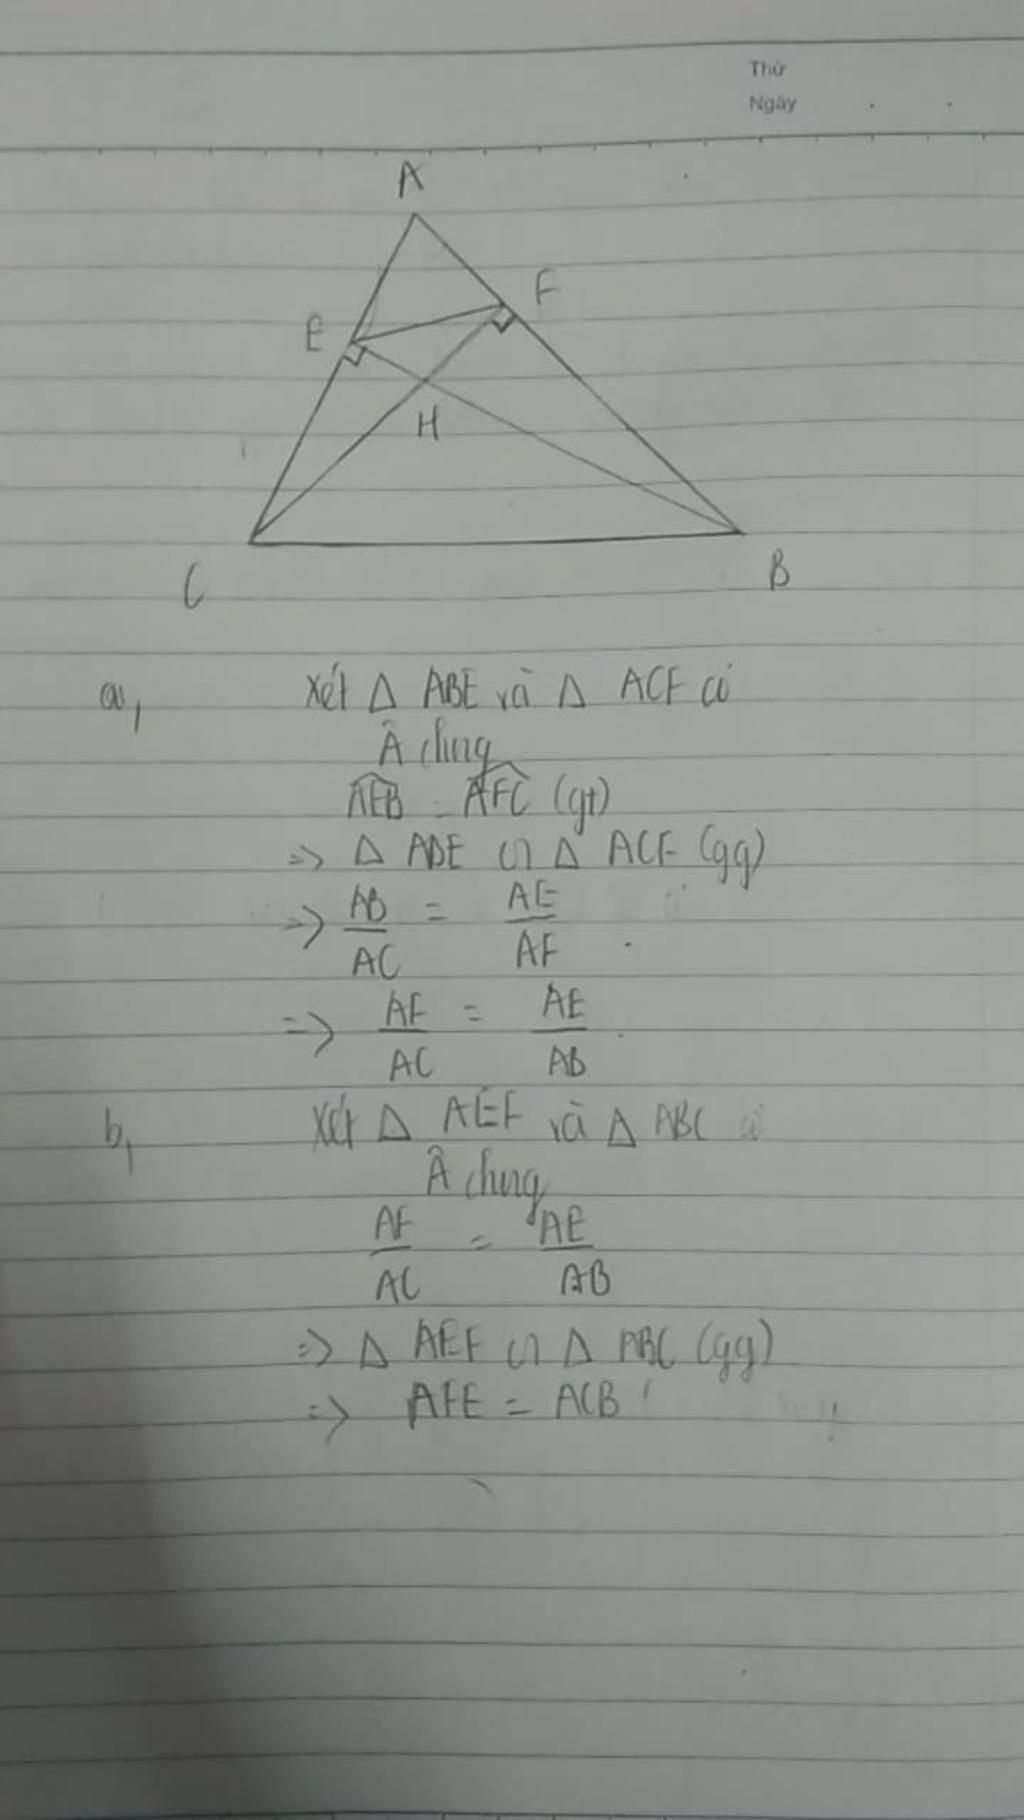 Thứ
Ngày
A
F
E
H
C
B
a, Xét Δ ABE và Δ ACF có
Â chung
AEB = AFC (gt)
=> Δ ABE ᔕ Δ ACF (gg)
=> AB/AC = AE/AF
=> AF/AC = AE/AB
b, Xét Δ AEF và Δ ABC có
Â chung
AF/AC = AE/AB
=> Δ AEF ᔕ Δ ABC (gg)
=> AFE = ACB